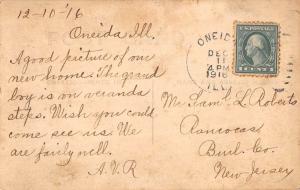 12-10-'16
Oneida Ill.
A good picture of our
new home. The grand
boy is on veranda
steps. Wish you could
come see us. We
are fairly well.
A. V. R
ONEIDA
DEC
11
4 PM
1916
ILL.
1 CENT 1
Mr. Saml. L. Roberts
Rancocas
Burl. Co.
New Jersey